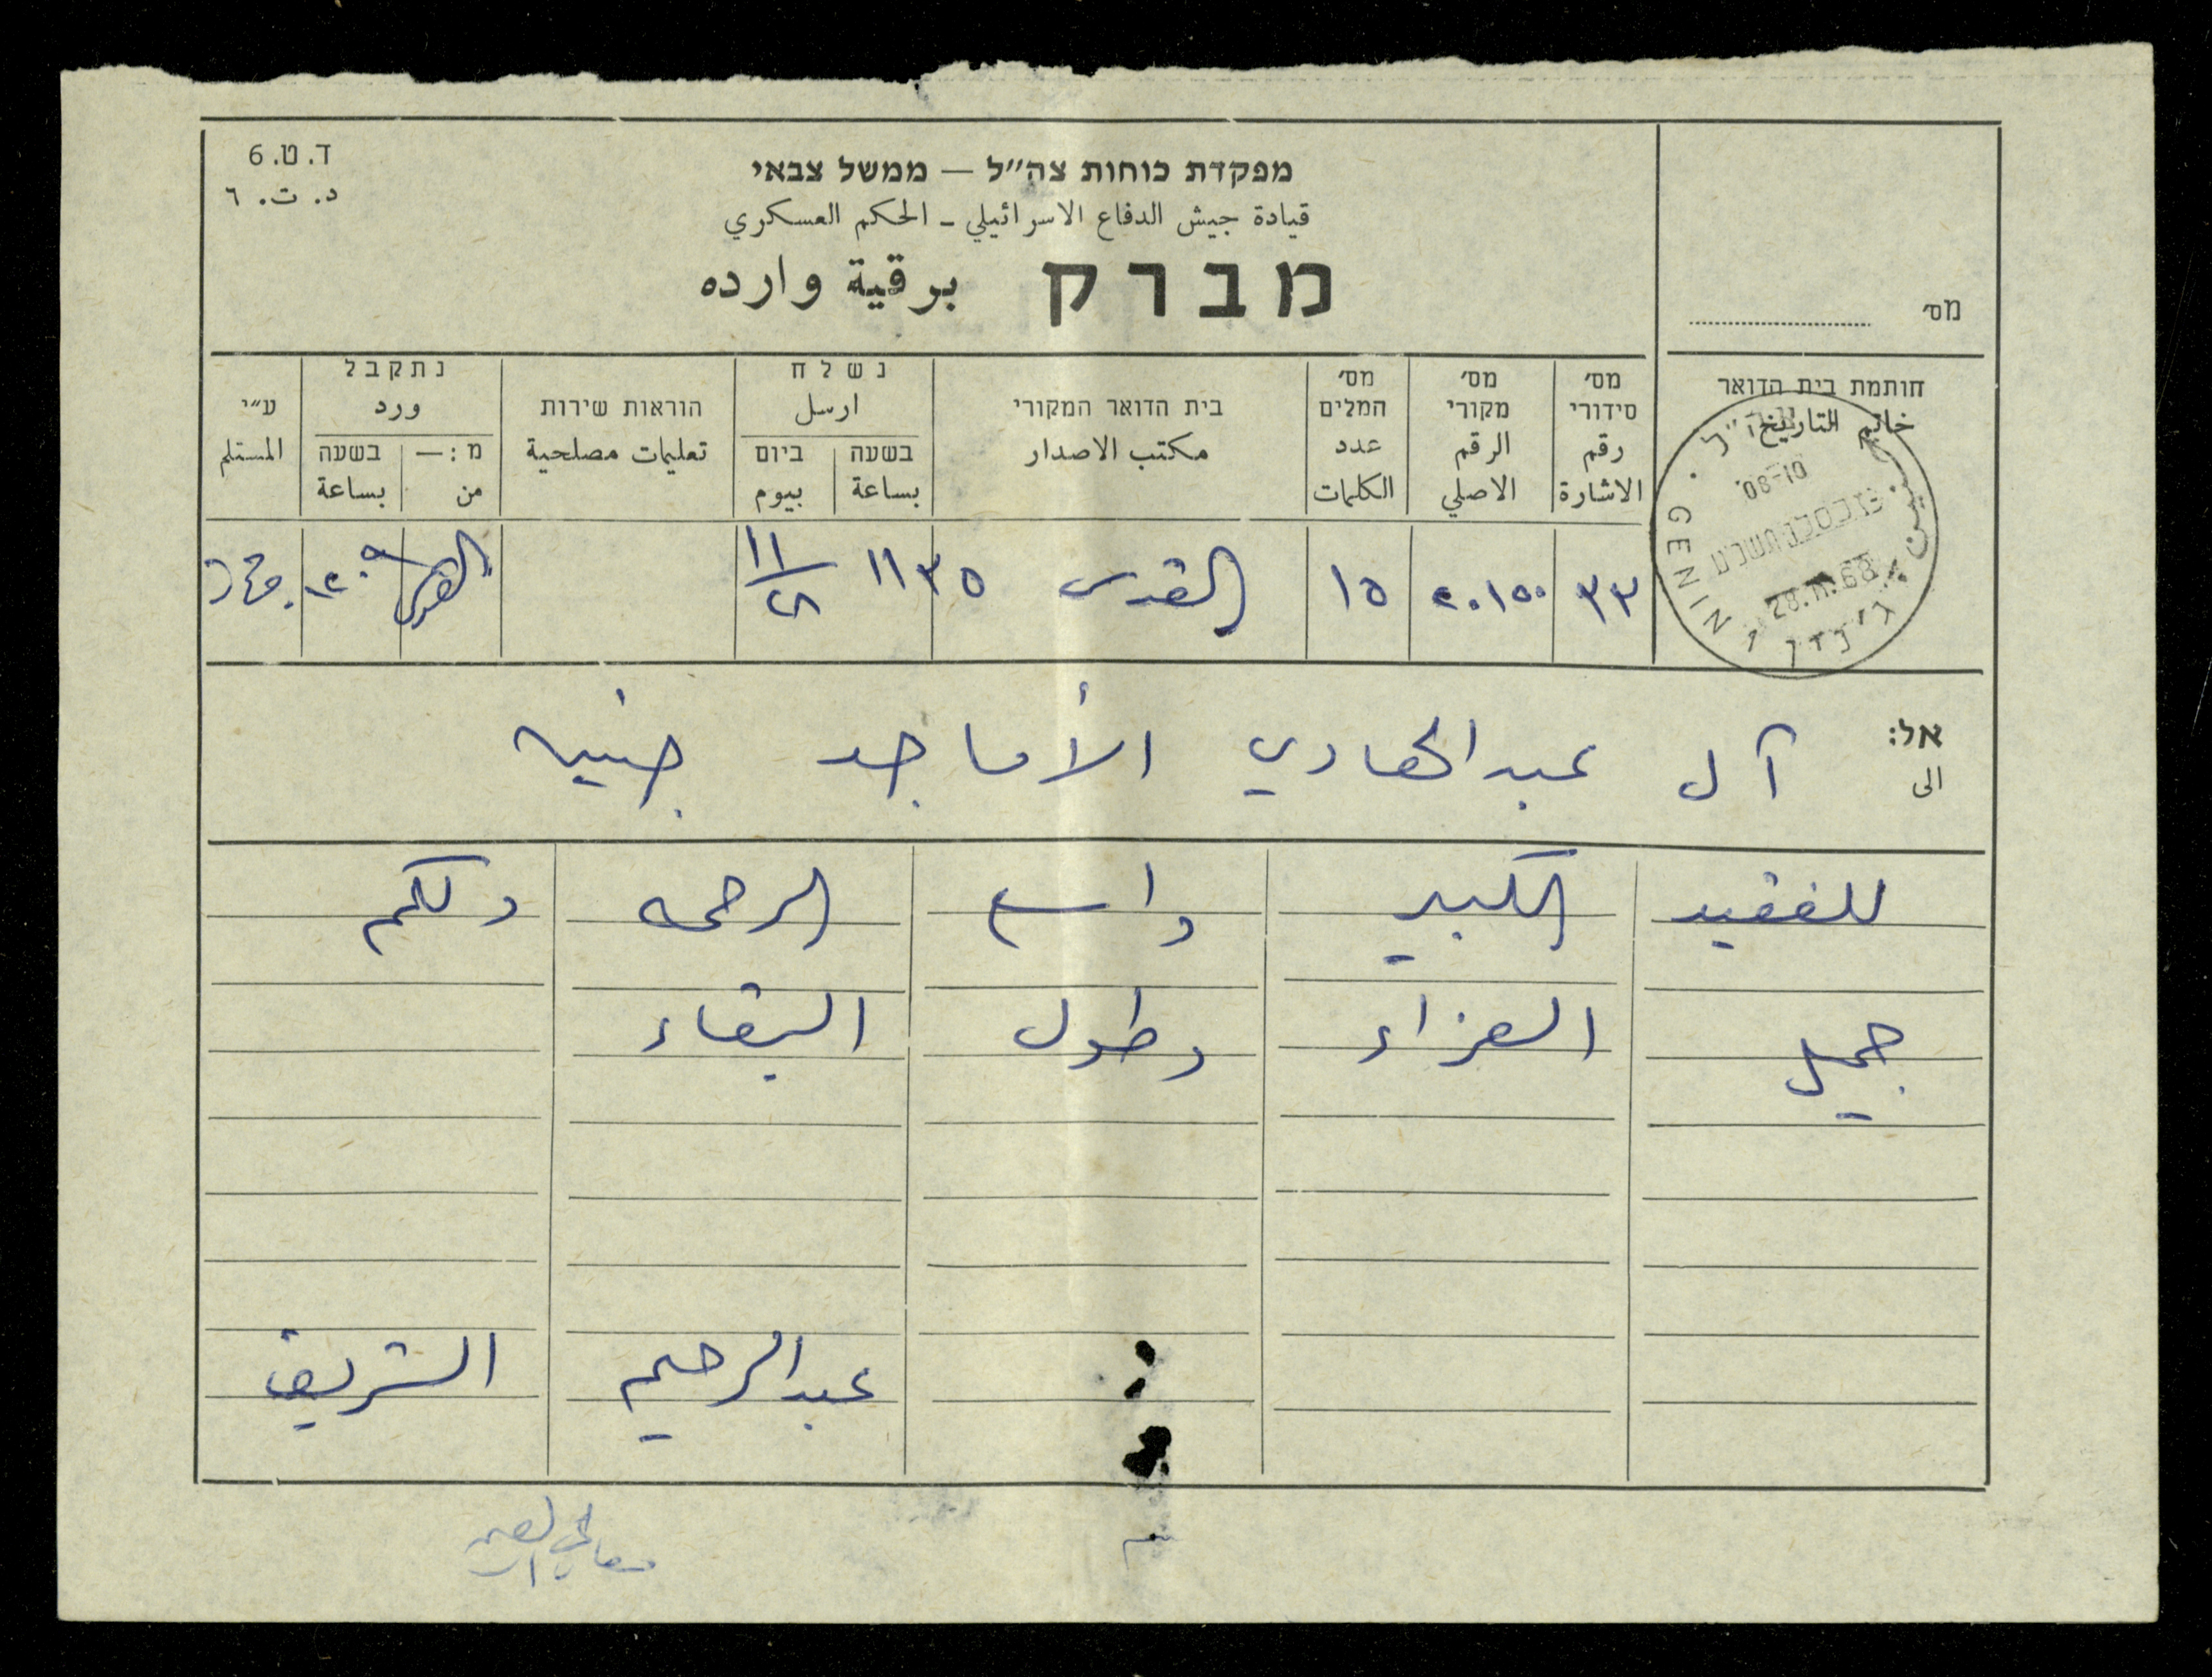 ד. ט. 6
د. ت. ٦
מפקדת כוחות צה"ל — ממשל צבאי
قيادة جيش الدفاع الاسرائيلي - الحكم العسكري
מברק برقية وارده
מס'
חותמת בית הדואר
خاتم التاريخ
מס' סידורי
رقم الاشارة
מס' מקורי
الرقم الاصلي
מס' המלים
عدد الكلمات
בית הדואר המקורי
مكتب الاصدار
נשלח
ارسل
בשעה
بساعة
ביום
بيوم
הוראות שירות
تعليمات مصلحية
נתקבל
ورد
מ: —
من
בשעה
بساعة
ע"י
المستلم
GENIN جنين ג'נין
٣٣ ٢٠١٥٠ ١٥ القدس ١١٣٥ ١١/٢ القدس
אל:
الى
آل عبدالهادي الأماجد جنين
للفقيد الكبير واسع الرحمه ولكم
جميل العزاء وطول البقاء
عبدالرحيم الشريف